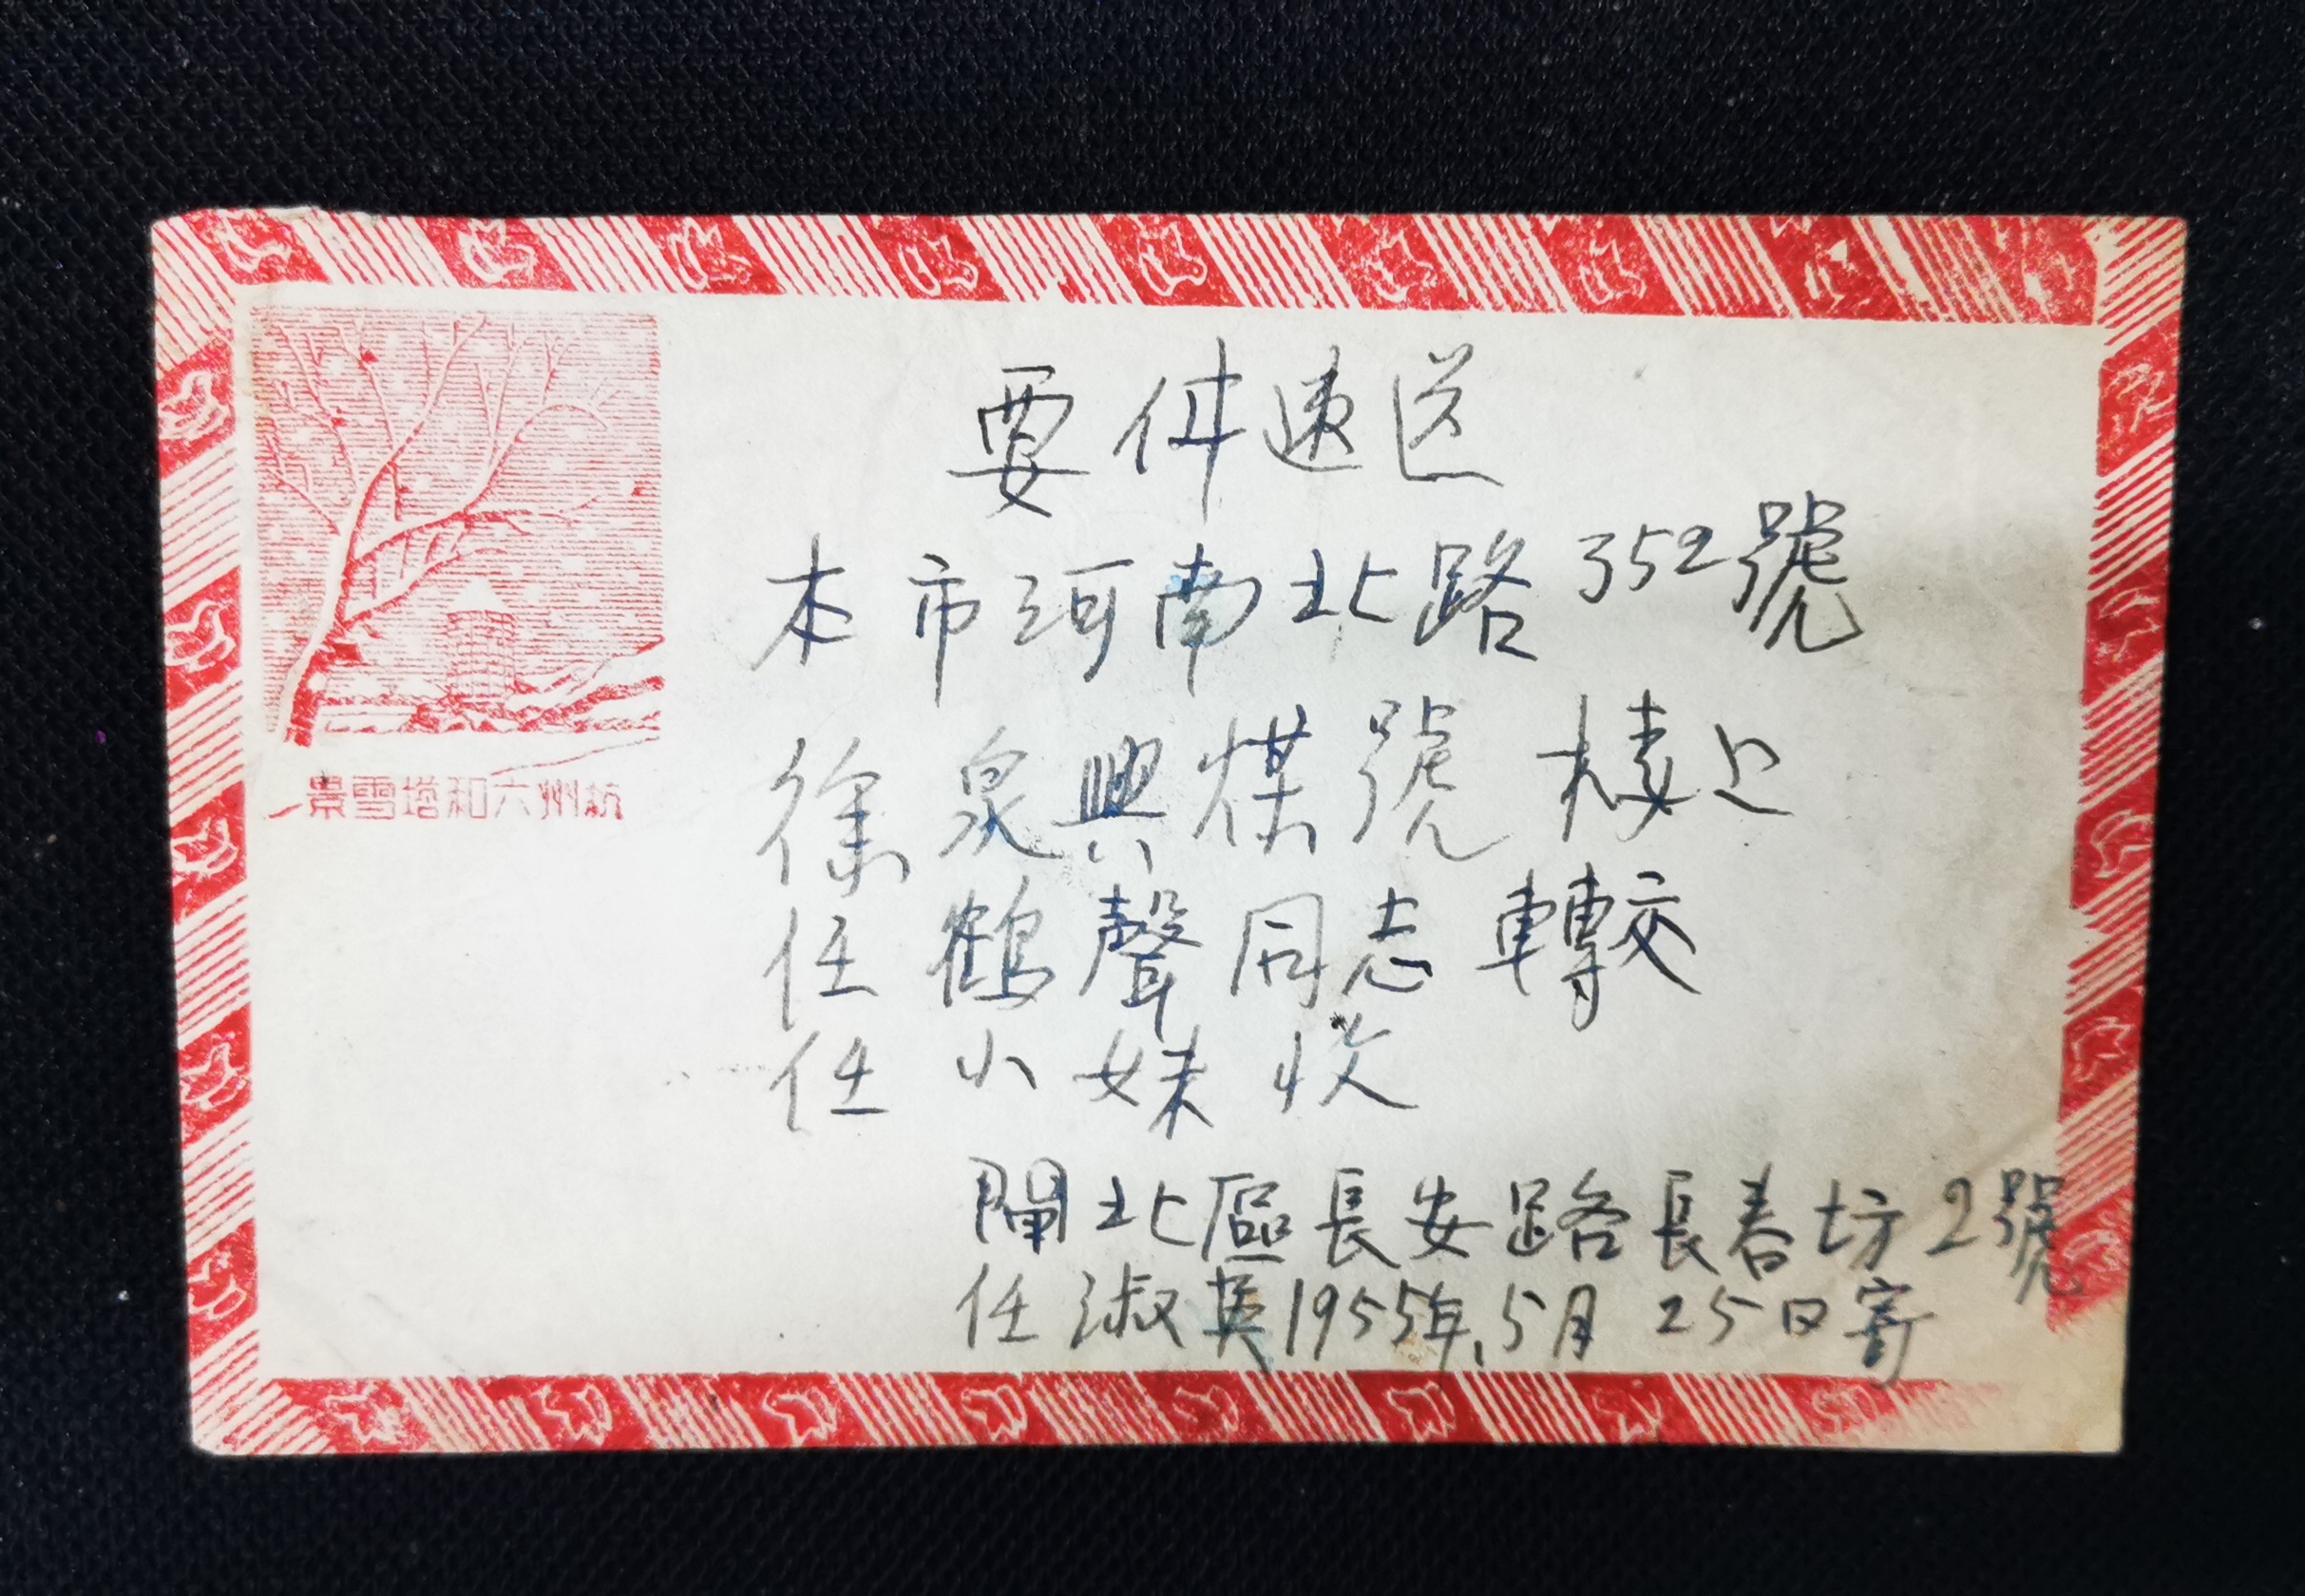 要件速送
本市河南北路352號
徐泉興煤號 楼上
任鶴聲同志轉交
任小妹收
閘北區長安路長春坊2號
任淑英1955年.5月25日寄
景雪塔和六州杭